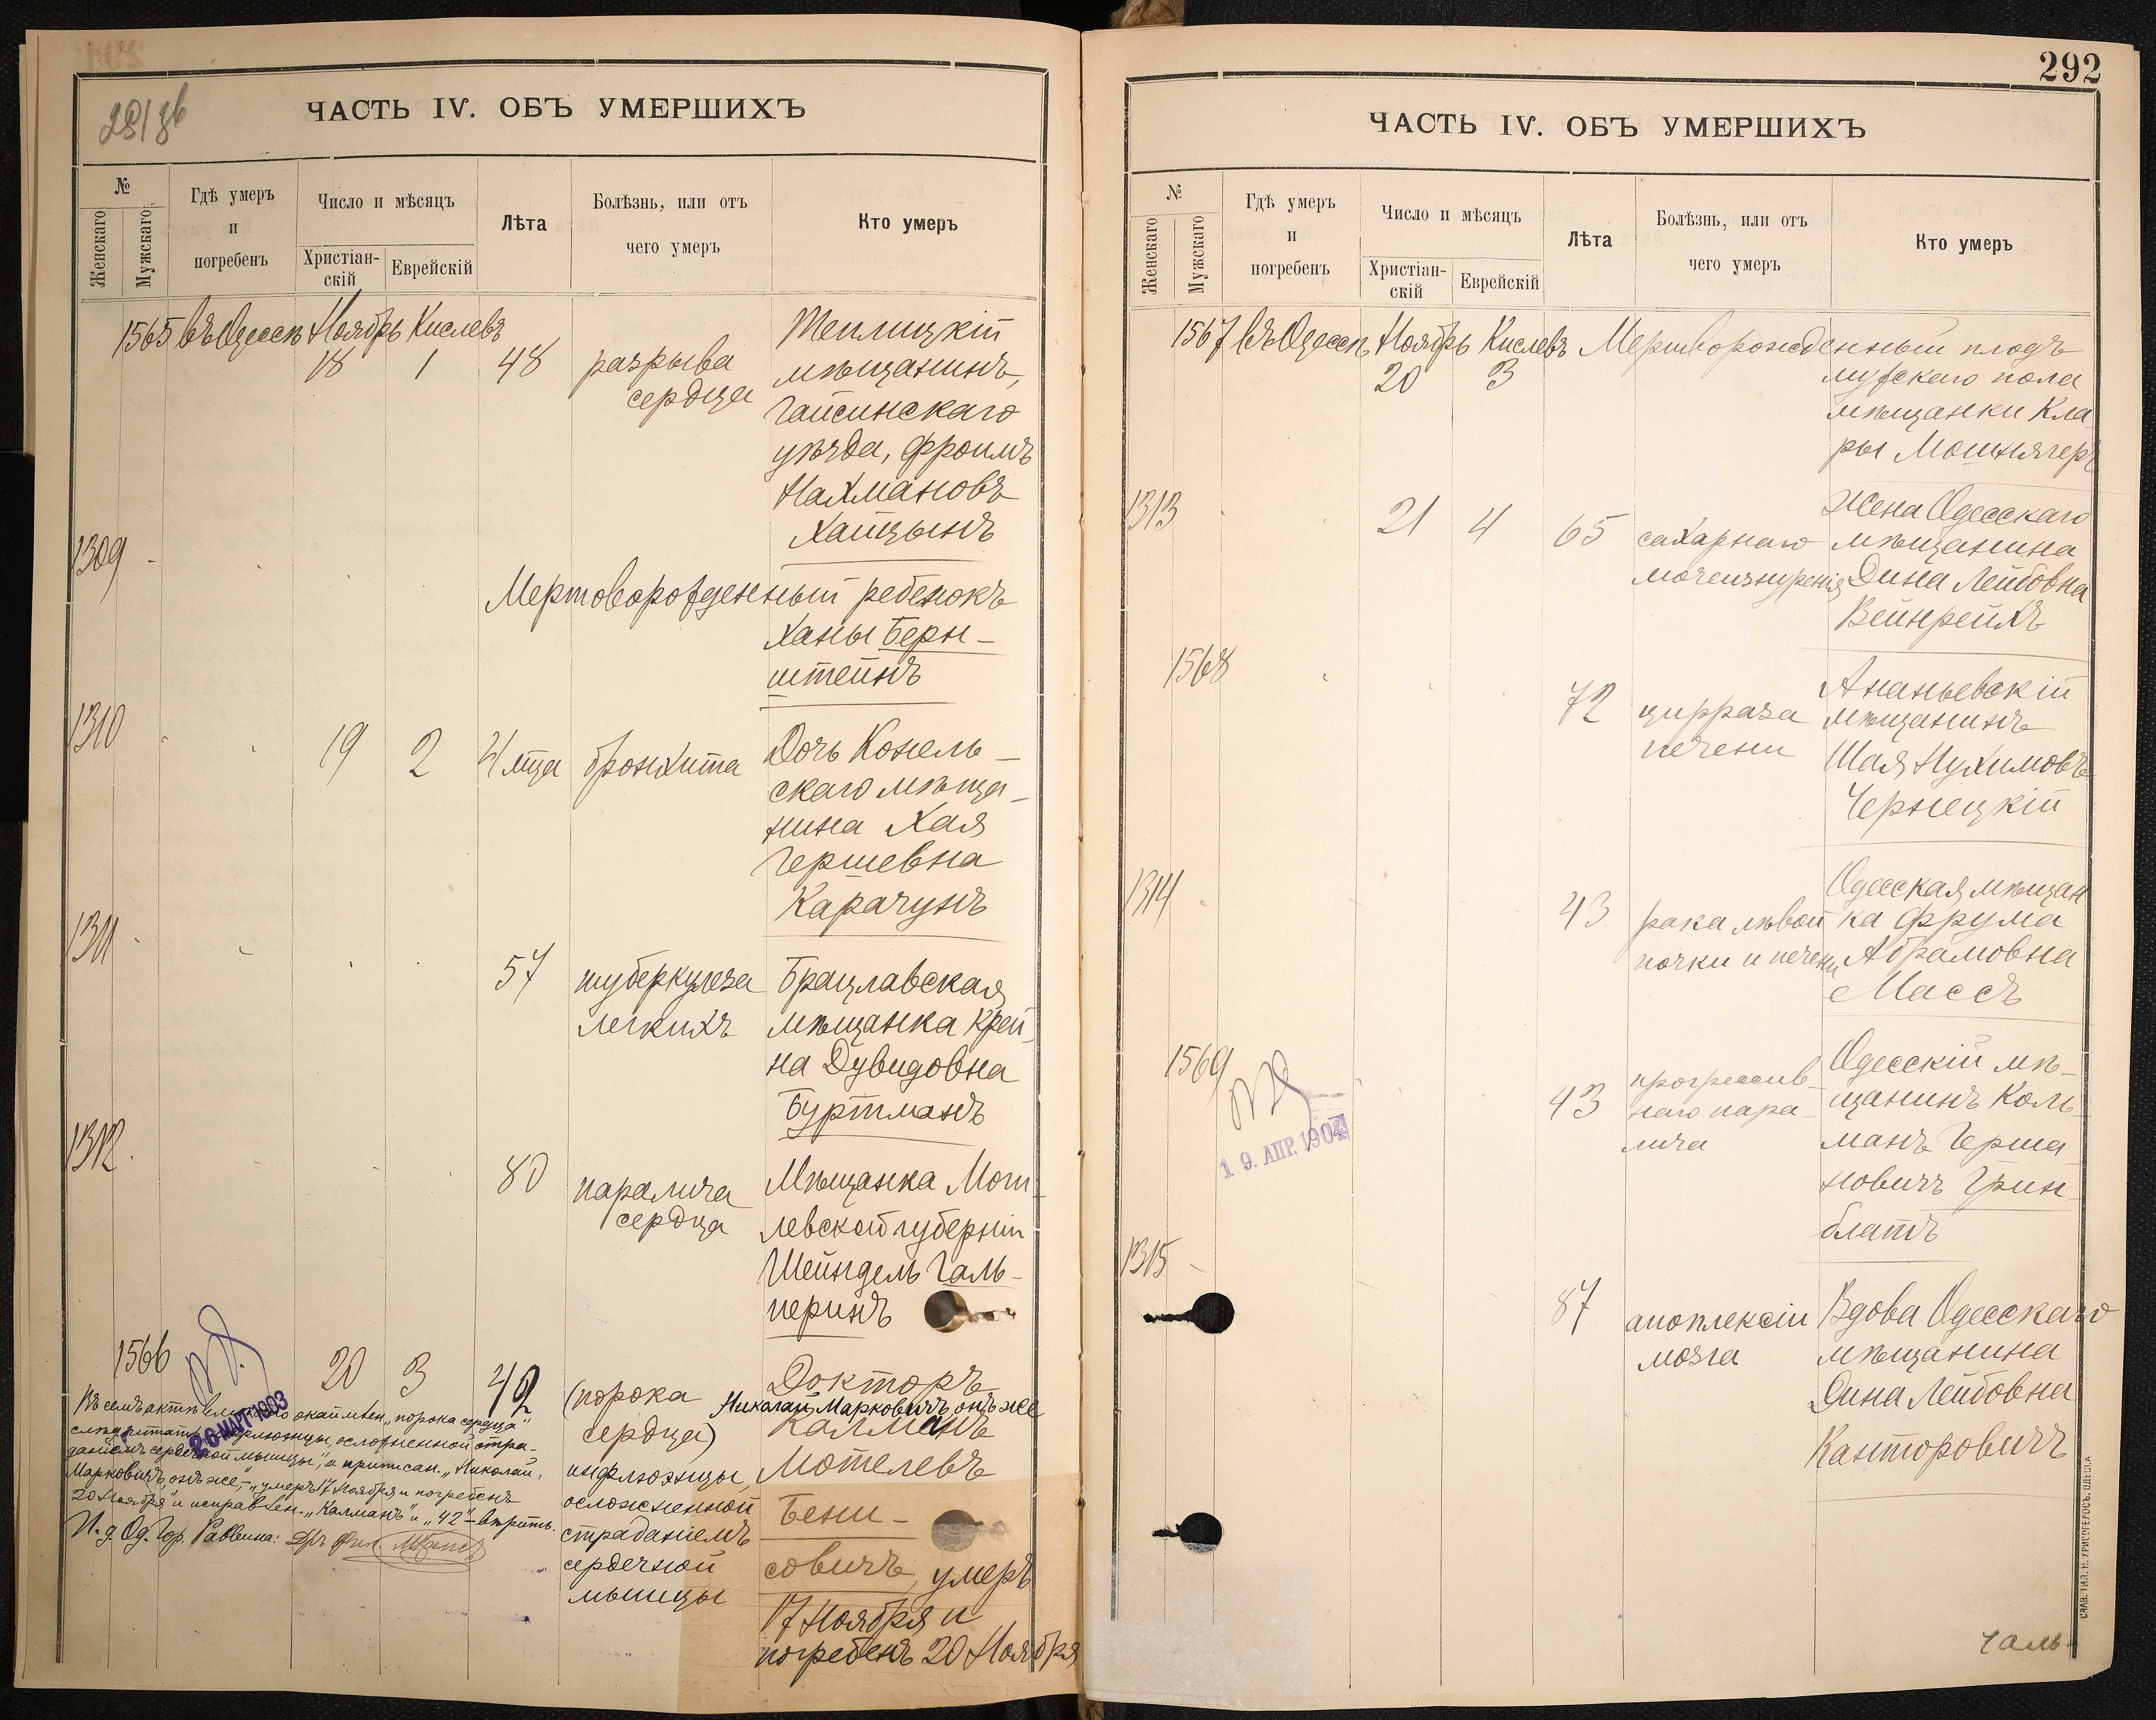 281 зв
ЧАСТЬ IV. ОБЪ УМЕРШИХЪ
№
Женскаго
Мужскаго
Гдѣ умеръ
и
погребенъ
Число и мѣсяцъ
Христіан-
скій
Еврейскій
Лѣта
Болѣзнь, или отъ
чего умеръ
Кто умеръ
1565 въ Одессѣ Ноябрь Кислевъ
18 1 48 разрыва
сердца
Теплицкій
мѣщанинъ,
Гайсинскаго
уѣзда, Фроимъ
Нахмановъ
Хайтзынъ
1309
Мертворожденный ребенокъ
Ханы Берн-
штейнъ
1310 19 2 4 мца бронхита
Дочь Конель-
скаго мѣща-
нина Хая
Гершевна
Карачунъ
1311 57 туберкулеза
легкихъ
Брацлавская
мѣщанка Крей-
на Дувидовна
Буртманъ
1312 80 паралича
сердца
Мѣщанка Моги-
левской губерніи
Шейндель Галь-
перинъ
1566 20 3 42 (порока
сердца)
инфлюэнцы,
осложненной
страданіемъ
сердечной
мышцы
Докторъ
Николай Марковичъ, онъ же
Калманъ
Мотелевъ
Бени-
совичъ, умеръ
17 Ноября и
погребенъ 20 Ноября
Въ семъ актѣ окаймлен. „порока сердца"
инфлюэнцы, осложненной стра-
даніемъ сердечной мышцы", а приписан. „Николай
Марковичъ, онъ же", - „умеръ 17 Ноября и погребенъ
20 Ноября" и исправлен. „Калманъ" и „42" - вѣрить.
И. д. Од. Гор. Раввина:
26 МАРТ 1903
292
ЧАСТЬ IV. ОБЪ УМЕРШИХЪ
№
Женскаго
Мужскаго
Гдѣ умеръ
и
погребенъ
Число и мѣсяцъ
Христіан-
скій
Еврейскій
Лѣта
Болѣзнь, или отъ
чего умеръ
Кто умеръ
1567 въ Одессѣ Ноябрь Кислевъ Мертворожденный плодъ
20 3
мужскаго пола
мѣщанки Кла
ры Мошнягеръ
1313 21 4 65 сахарнаго
мочеизнуренія
Жена Одесскаго
мѣщанина
Дина Лейбовна
Вейнрейхъ
1568 72 цирроза
печени
Ананьевскій
мѣщанинъ
Шая Нухимовъ
Чернецкій
1314 43 рака лѣвой
почки и печени
Одесская мѣщан
ка Фрума
Абрамовна
Массъ
1569 43 прогрессив-
наго пара-
лича
Одесскій мѣ-
щанинъ Коль-
манъ Герша
новичъ Грин-
блатъ
19. АПР. 1904
1315 87 апоплексіи
мозга
Вдова Одесскаго
мѣщанина
Дина Лейбовна
Канторовичъ
Галь-
СЛАВ. ТИП. Н. ХРИСОГЕЛОСЪ. ОДЕССА